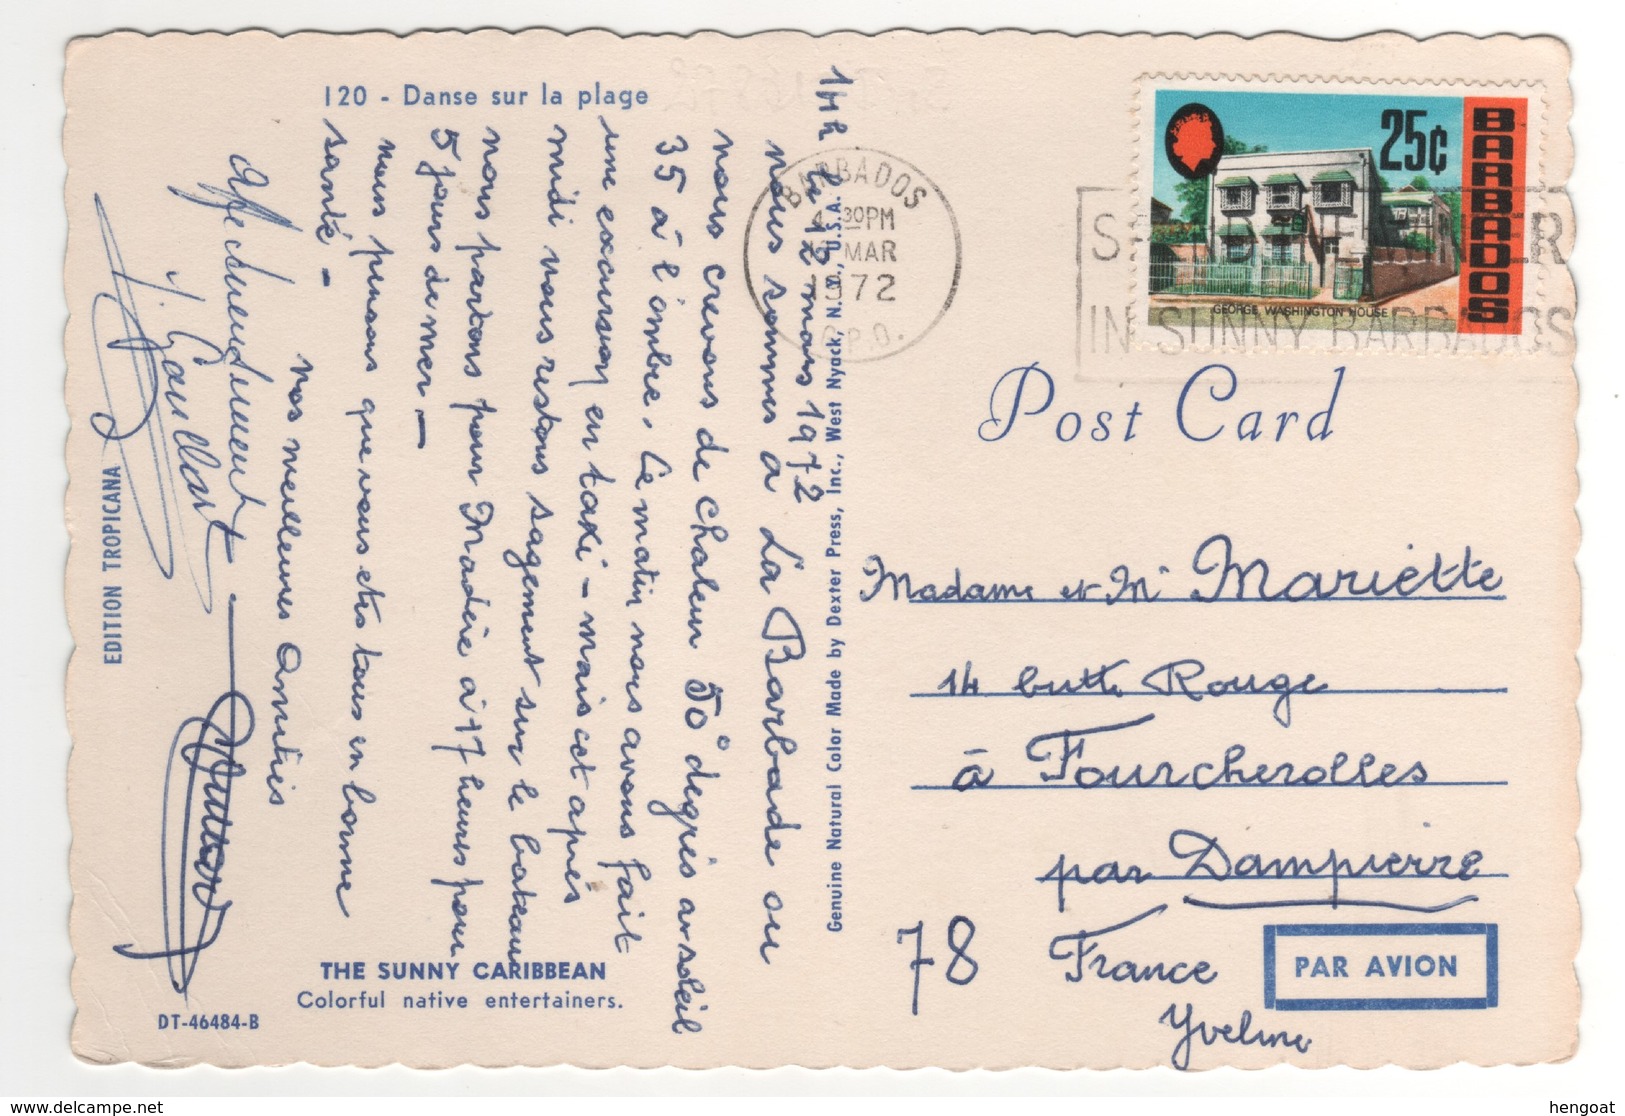 120 - Danse sur la plage
14H le 12 mars 1972
nous sommes a La Barbade ou
nous crevons de chaleur 50° degrès au soleil
35 à l'ombre. Ce matin nous avons fait
une excursion en taxi - mais cet après
midi nous restons sagement sur le bateau
nous partons pour Madère à 17 heures pour
5 jours de mer -
nous pensons que vous etes tous en bonne
santé -
nos meilleures amitiés
affectueusement
EDITION TROPICANA
THE SUNNY CARIBBEAN
Colorful native entertainers.
DT-46484-B
Genuine Natural Color Made by Dexter Press, Inc., West Nyack, N.Y., U.S.A.
BARBADOS
4 30PM
MAR
1972
G.P.O.
25¢
BARBADOS
GEORGE WASHINGTON HOUSE
IN SUNNY BARBADOS
Post Card
Madame et Mr Mariette
14 butte Rouge
à Fourcherolles
par Dampierre
78 France
Yveline
PAR AVION
hengoat